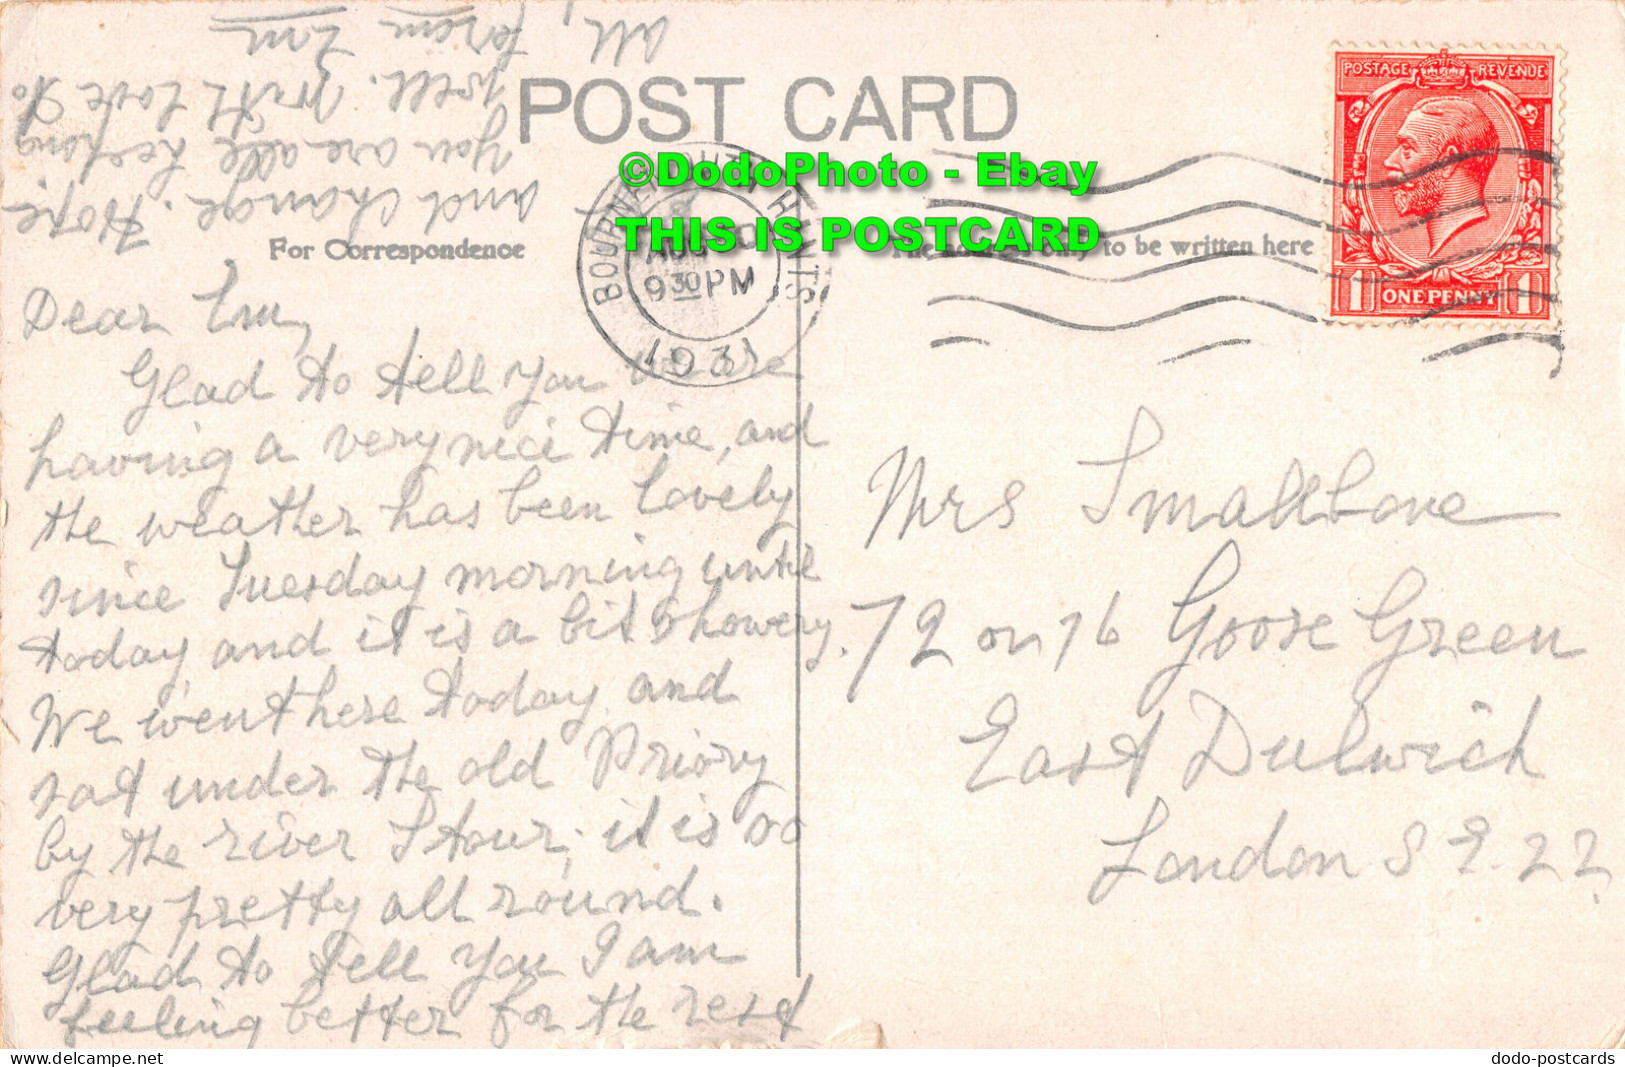 POST CARD
©DodoPhoto - Ebay
THIS IS POSTCARD
For Correspondence
to be written here
BOURNEMOUTH HANTS
AUG
9 30 PM
1931
POSTAGE REVENUE
1 ONE PENNY 1
Dear Em,
Glad to tell you we are
having a very nice time, and
the weather has been lovely
since Tuesday morning until
today and it is a bit showery.
We went here today and
sat under the old Priory
by the river Stour, it is so
very pretty all round.
Glad to tell you I am
feeling better for the rest
and change. Hope
you are all keeping
well. With love to
all, from Em
Mrs Smallbone
72 or 76 Goose Green
East Dulwich
London S E. 22.
dodo-postcards